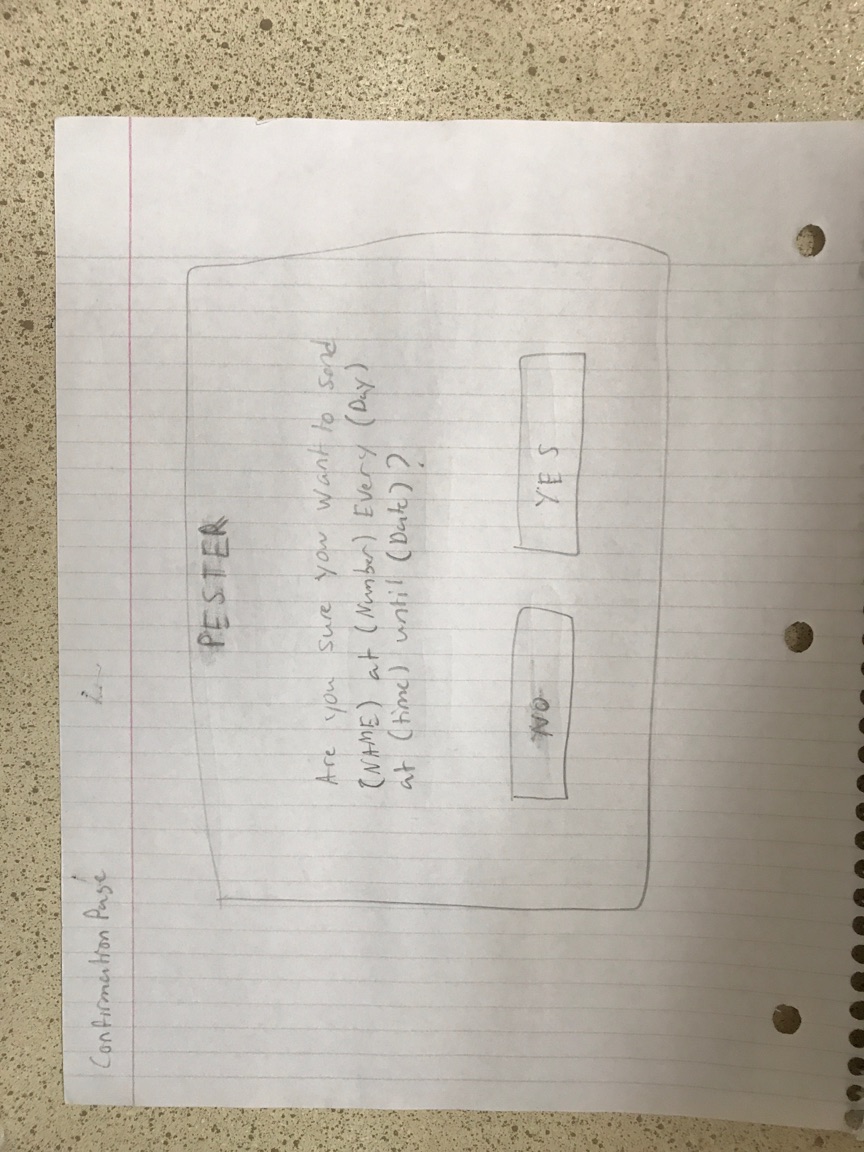 Confirmation Page
PESTER
Are you sure you want to send
(NAME) at (Number) Every (Day)
at (time) until (Date)?
NO
YES